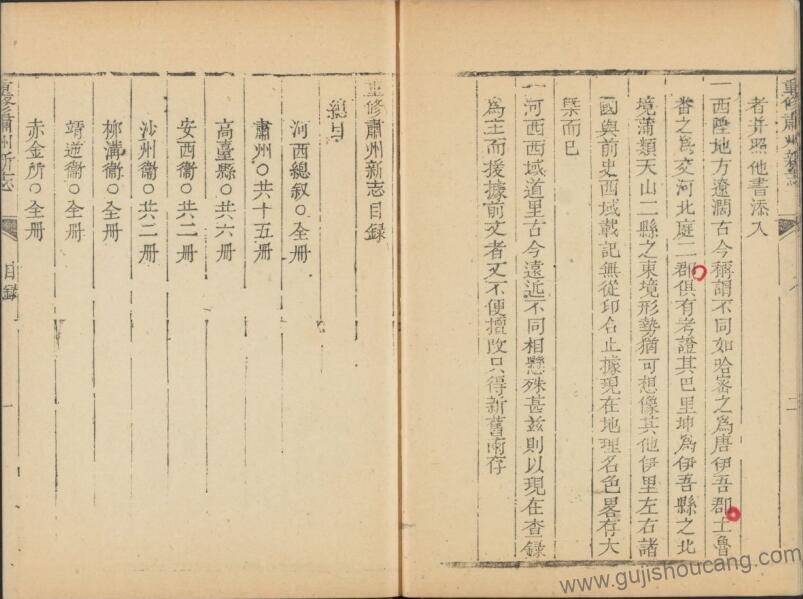 者并照他書添入
一西陲地方遼濶古今稱謂不同如哈密之爲唐伊吾郡土魯
番之爲交河北庭二郡俱有考證其巴里坤爲伊吾縣之北
境蒲類天山二縣之東境形勢猶可想像其他伊里左右諸
國與前史西域載記無從印合止據現在地理名色畧存大
槩而已
一河西西域道里古今遠近不同相懸殊甚兹則以現在查録
爲主而援據前文者又不便擅改只得新舊兩存
重修肅州新志
二
重修肅州新志目録
總目
河西總叙○全册
肅州○共十五册
高臺縣○共六册
安西衞○共二册
沙州衞○共二册
柳溝衞○全册
靖逆衞○全册
赤金所○全册
重修肅州新志
目録
一
www.gujishoucang.com